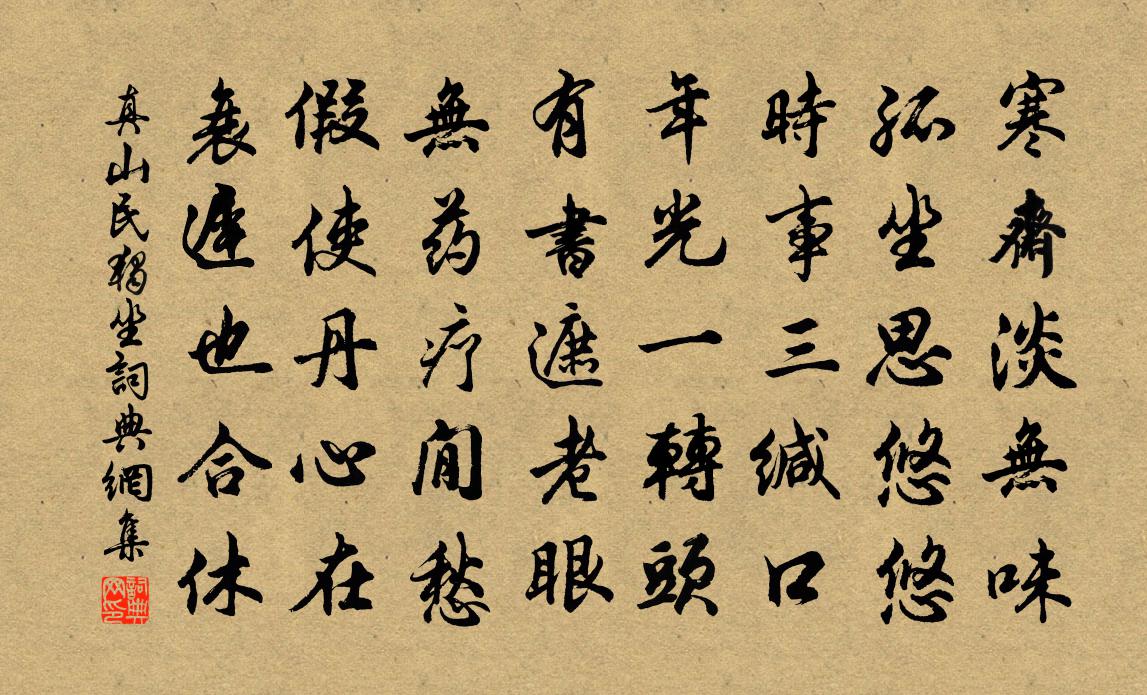 寒齋淡無味
孤坐思悠悠
時事三緘口
年光一轉頭
有書遮老眼
無药疗閒愁
假使丹心在
衰遲也合休
真山民獨坐詞典網集
詞典網印